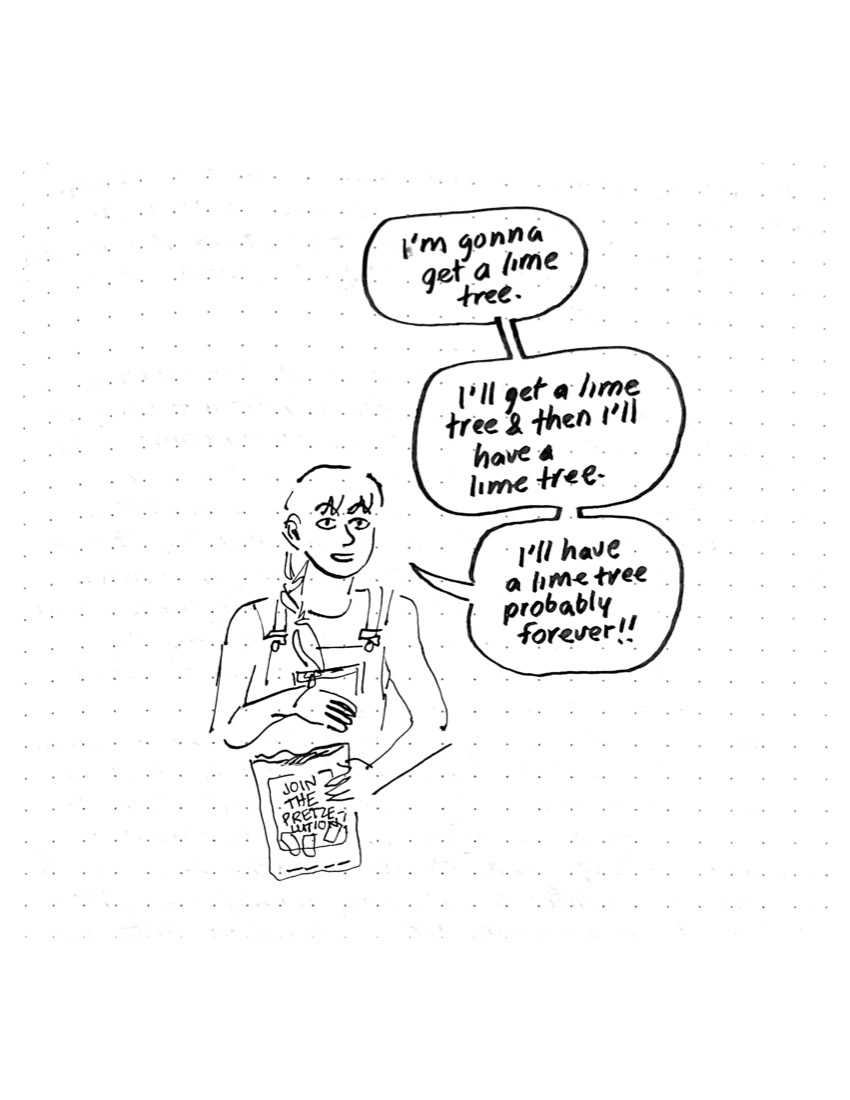 I'm gonna
get a lime
tree.
I'll get a lime
tree & then I'll
have a
lime tree.
I'll have
a lime tree
probably
forever!!
JOIN
THE
PRETZE-
LUTION